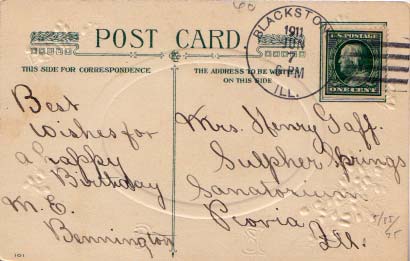 60
POST CARD.
THIS SIDE FOR CORRESPONDENCE
THE ADDRESS TO BE WRITTEN
ON THIS SIDE
BLACKSTO
1911
JUN
7
6 PM
ILL.
U.S. POSTAGE
ONE CENT
Best
wishes for
a happy
Birthday
M. E.
Bennington
Mrs. Henry Gaff.
Sulpher Springs
Sanatorium
Peoria
Ill.
101